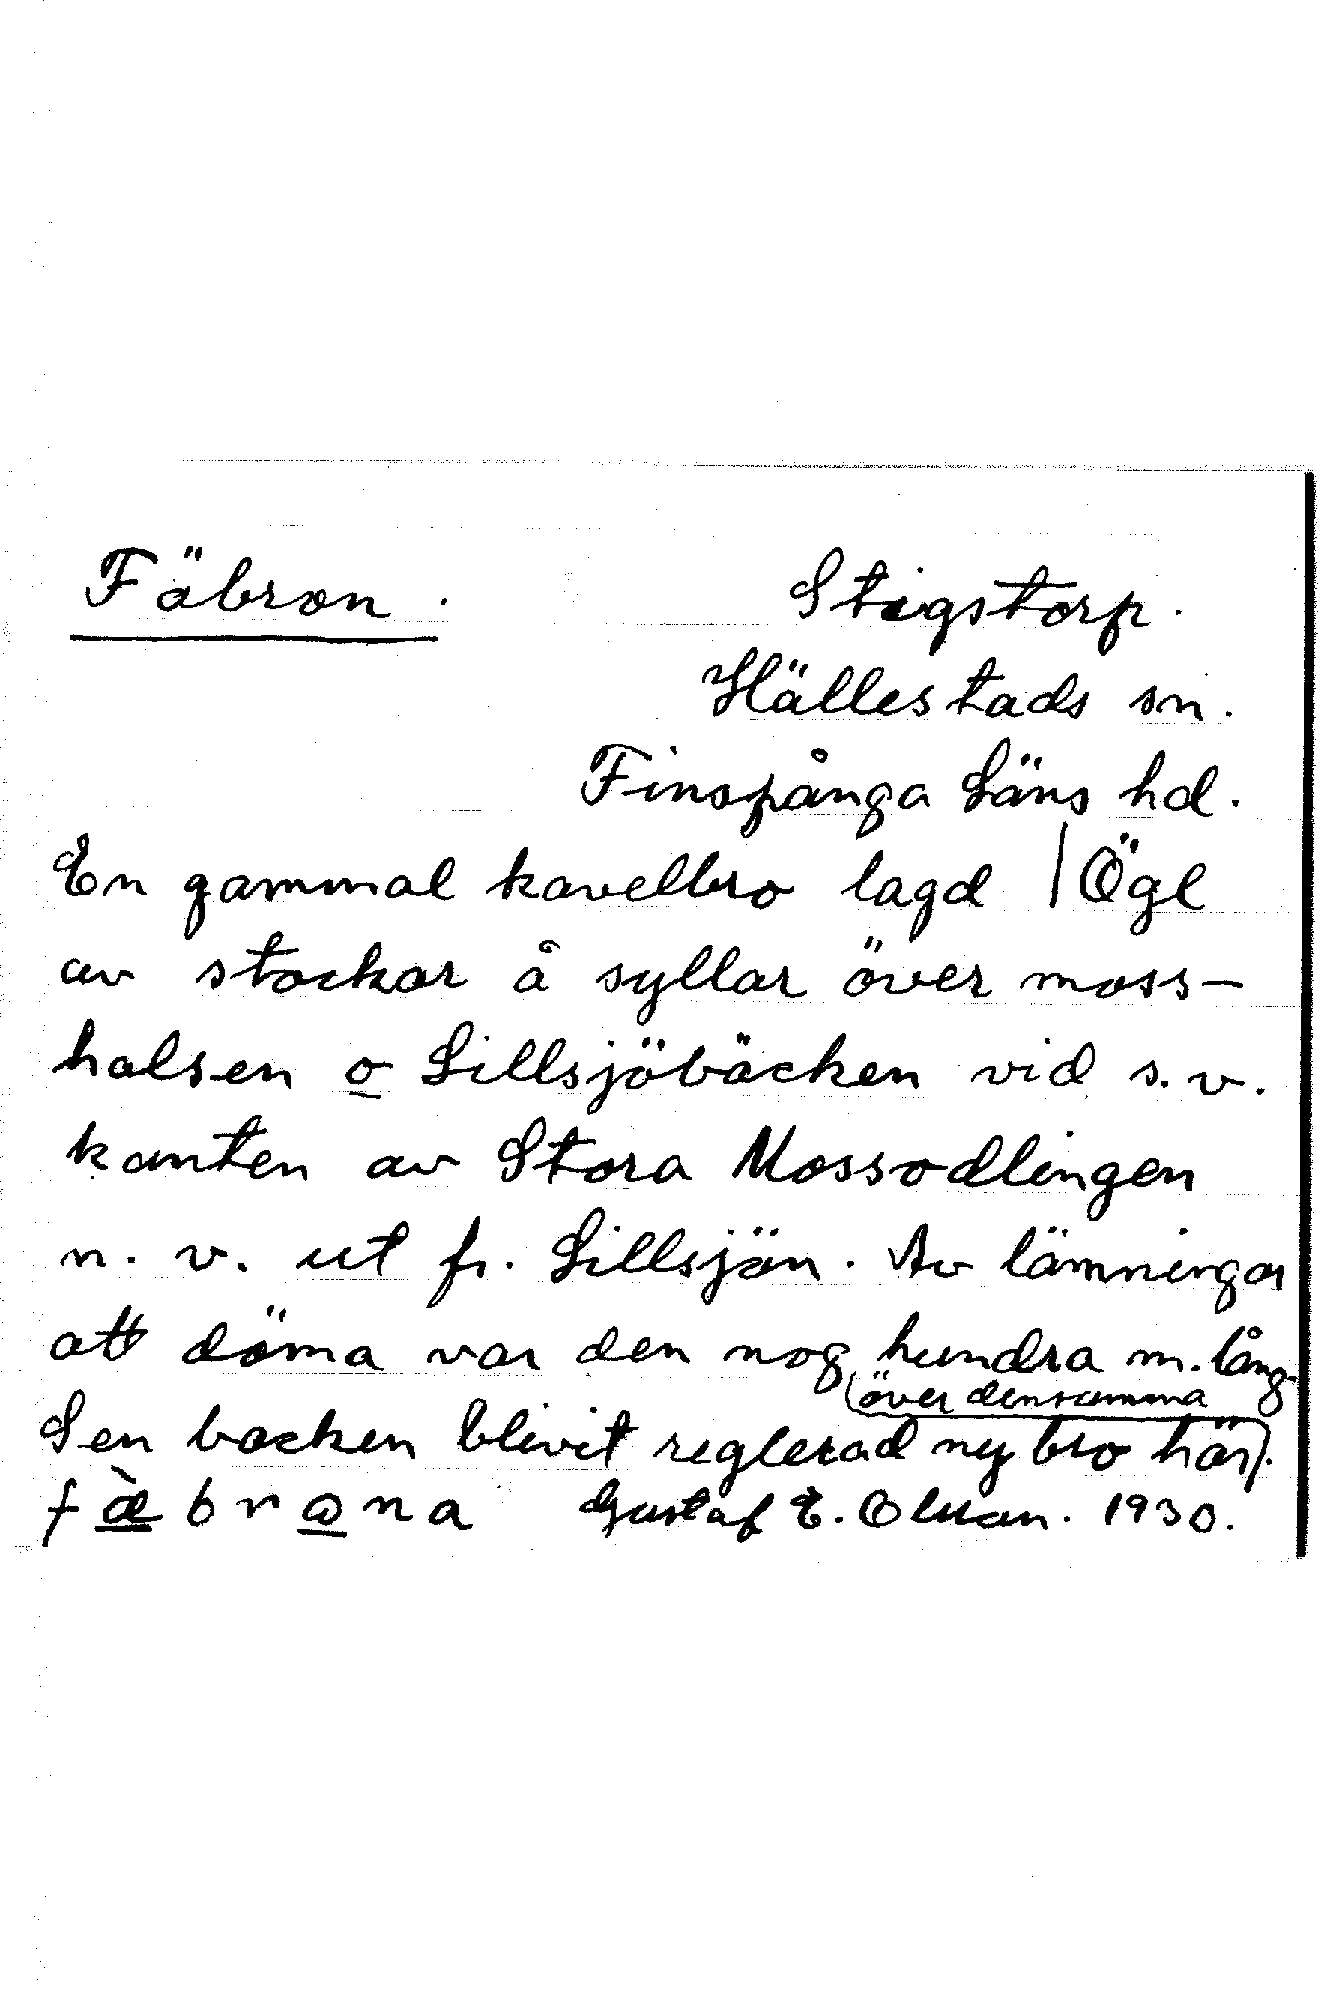 Fäbron.
Stigstorp.
Hällestads sn.
Finspånga Läns hd.
En gammal kavelbro lagd | Ögl
av stockar å syllar över moss-
halsen o Lillsjöbäcken vid s.v.
kanten av Stora Mossodlingen
n.v. ut fr. Lillsjön. Av lämningar
att döma var den nog hundra m. lång.
Sen backen blivit reglerad ny bro här
(över densamma).
fæ̀brωna Gustaf E. Olsson. 1930.